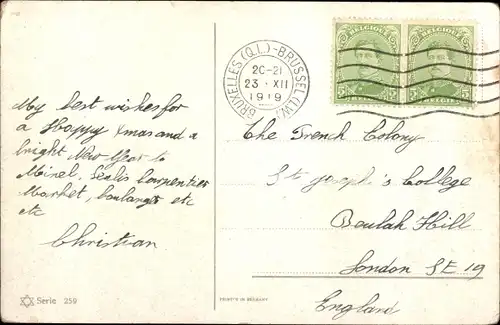 My best wishes for
a Happy Xmas and a
bright New Year to
Minel, Senlis Carpentier
Market, Boulanger etc
etc
Christian
Serie 259
PRINTED IN BELGIUM
BRUXELLES (Q.L.) - BRUSSEL (L.W.)
20-21
23 · XII
1919
BELGIQUE BELGIQUE
5 BELGIE 5 5 BELGIE 5
The French Colony
St Joseph's College
Beulah Hill
London SE 19
England